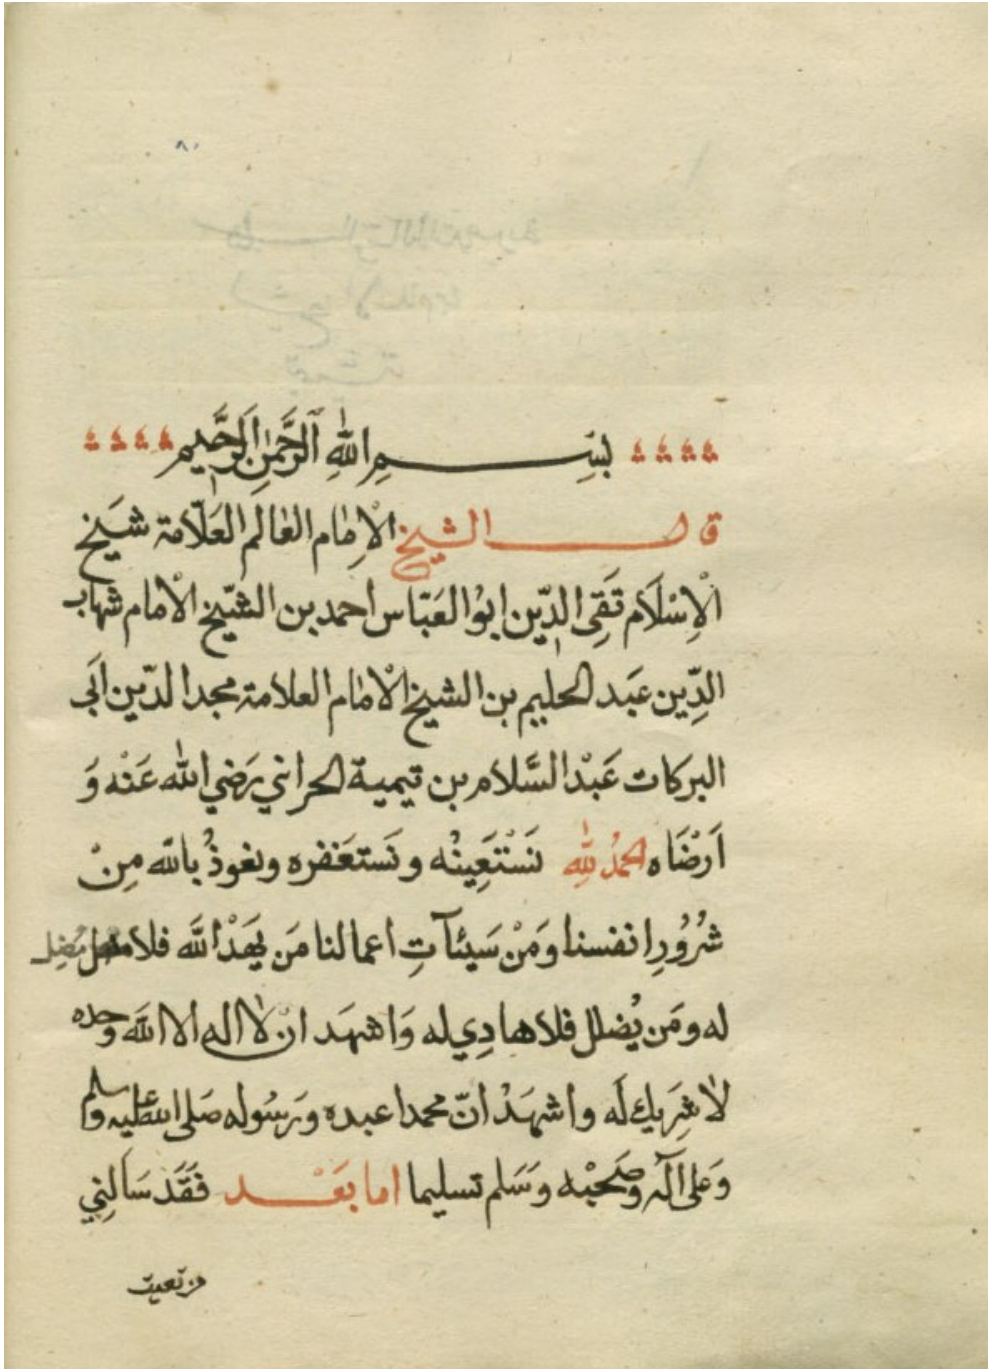 ٨٠
بِسْمِ اللّٰهِ الرَّحْمٰنِ الرَّحِيم
قال الشيخ الْاِمٰام العٰالِم العَلّامة شيَخ
الْاِسْلَام تَقِى الدِّين ابوُ العَبّاس احمد بن الشّيخ الْامام شهاب
الدِّين عَبد الحليم بن الشيخ الْامٰام العلامة مجد الدّين اَبى
البركات عَبْد السَّلام بن تيمية الحراني رَضي اللّٰه عَنْه وَ
اَرْضَاه الحمْدُ لِلّٰهِ نَسْتَعِينُه ونَستَغفره ونعوذُ باللّه مِنْ
شُرُورِ انفسنا وَمَنْ سَيئآتِ اعمالنا مَن يَهَدْ اللّه فلا مضل
له ومَن يُضلل فلا هادِي له وَاشهَد انْ لٰا اله الا اللّه وحده
لٰا شِرَيك لَه واشهَدْ انّ محمدا عبده وَرَسُوله صَلى اللّه عليه وسلم
وَعلى آله وصَحبْه وَسَلم تسليما اما بَعْد فقَدَ سَالنِي
من تعيت